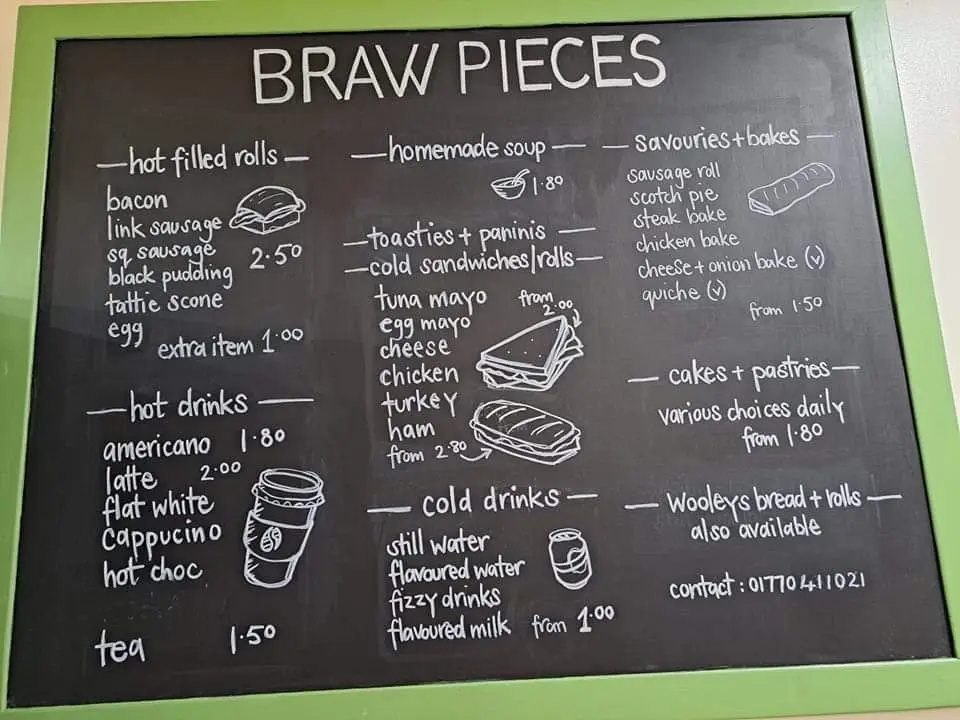 BRAW PIECES
hot filled rolls
bacon
link sausage
sq sausage 2.50
black pudding
tattie scone
egg
extra item 1.00
hot drinks
americano 1.80
latte 2.00
flat white
cappucino
hot choc
tea 1.50
homemade soup
1.80
toasties + paninis
cold sandwiches/rolls
tuna mayo from
2.00
egg mayo
cheese
chicken
turkey
ham
from 2.80
cold drinks
still water
flavoured water
fizzy drinks
flavoured milk from 1.00
savouries + bakes
sausage roll
scotch pie
steak bake
chicken bake
cheese + onion bake (v)
quiche (v)
from 1.50
cakes + pastries
various choices daily
from 1.80
Wooleys bread + rolls
also available
contact : 01770 411021